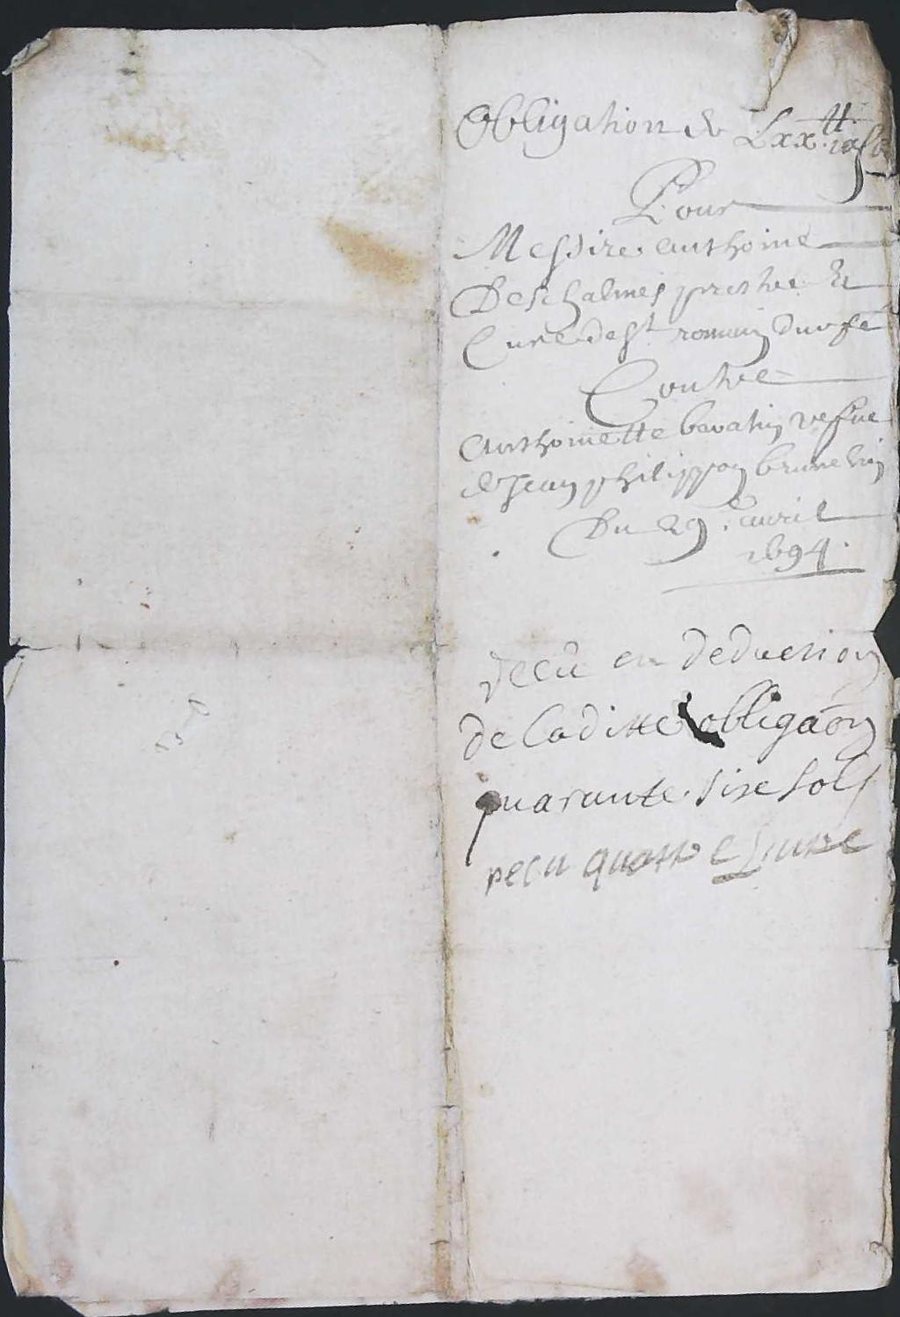 Obligation de Lxx.tt
Pour
Messire anthoine
Deschalmes prestre et
Curé de st romain durfé
Contre
Anthoinette vefue
de Jean philippon
Du 29. auril
1694.
receu en deduction
de laditte obligaôn
quarante sise sols
receu quattre Liure